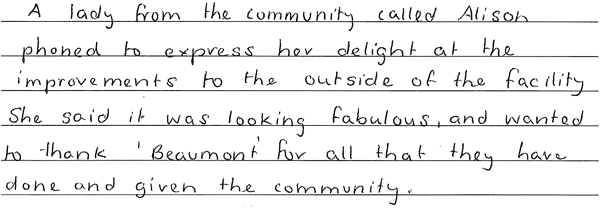 A lady from the community called Alison
phoned to express her delight at the
improvements to the outside of the facility
She said it was looking fabulous, and wanted
to thank 'Beaumont' for all that they have
done and given the community.